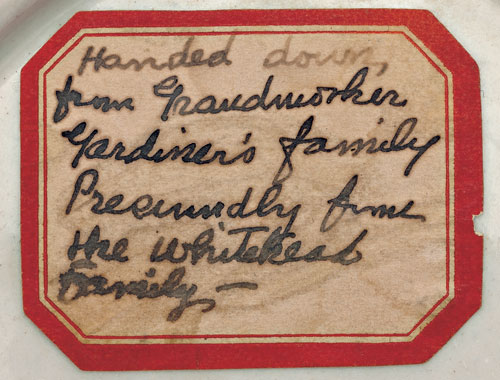 Handed down,
from Grandmother
Gardiner's family
Presumedly from
the Whitehead
Family —